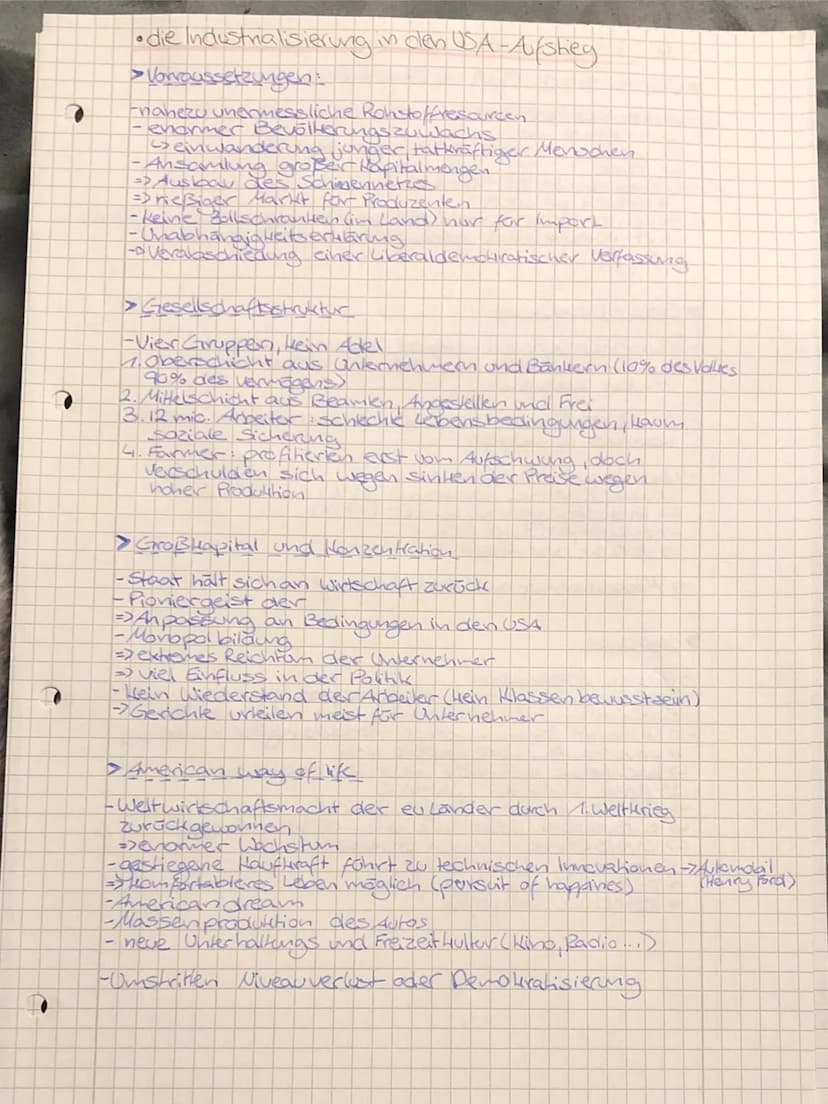 • die Industrialisierung in den USA - Aufstieg
> Vorraussetzungen:
- nahezu unermessliche Rohstoffresourcen
- enormer Bevölkerungszuwachs
↳ einwanderung junger, tatkräftiger Menschen
- Ansamlung großer Kapitalmengen
=> Ausbau des Schienennetzes
=> rießiger Markt für Produzenten
- keine Zollschranken (im Land) nur für Import
- Unabhängigkeitserklärung
-> Verabschiedung einer Liberaldemokratischer Verfassung
> Gesellschaftsstruktur
- Vier Gruppen, kein Adel
1. Oberschicht aus Unternehmern und Bänkern (10% des Volkes
90% des Vermögens)
2. Mittelschicht aus Beamten, Angestellen und Frei
3. 12 mio. Arbeiter: schlechte Lebensbedingungen, kaum
soziale Sicherung
4. Farmer: profitierten erst vom Aufschwung, doch
verschulden sich wegen sinken der Preise wegen
hoher Produktion
> Großkapital und Konzentration
- Staat hält sich an Wirtschaft zurück
- Pioniergeist der
=> Anpassung an Bedingungen in den USA
- Monopolbildung
=> extremes Reichtum der Unternehmer
=> viel Einfluss in der Politik
- kein Wiederstand der Arbeiter (kein Klassenbewusstsein)
-> Gerichte urteilen meist für Unternehmer
> American way of life
- Weltwirtschaftsmacht der eu Länder durch 1. Weltkrieg
zurückgewonnen
=> enormer Wachstum
- gestiegene Kaufkraft führt zu technischen Innovationen -> Automobil
(Henry Ford)
=> komfortableres Leben möglich (persuit of happines)
- American dream
- Massenproduktion des Autos
- neue Unterhaltungs und Freizeitkultur (Kino, Radio...)
- Umstritten Niveauverlust oder Demokratisierung